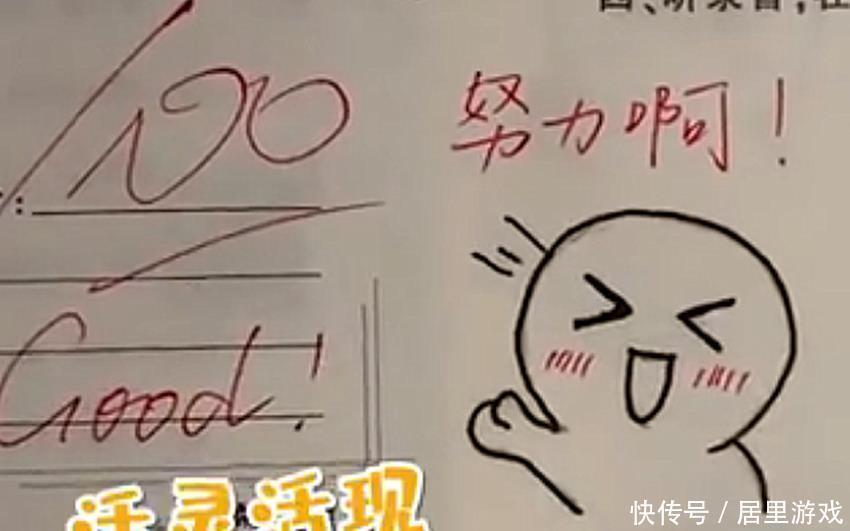 100
努力啊!
Good!
活灵活现
快传号 / 居里游戏